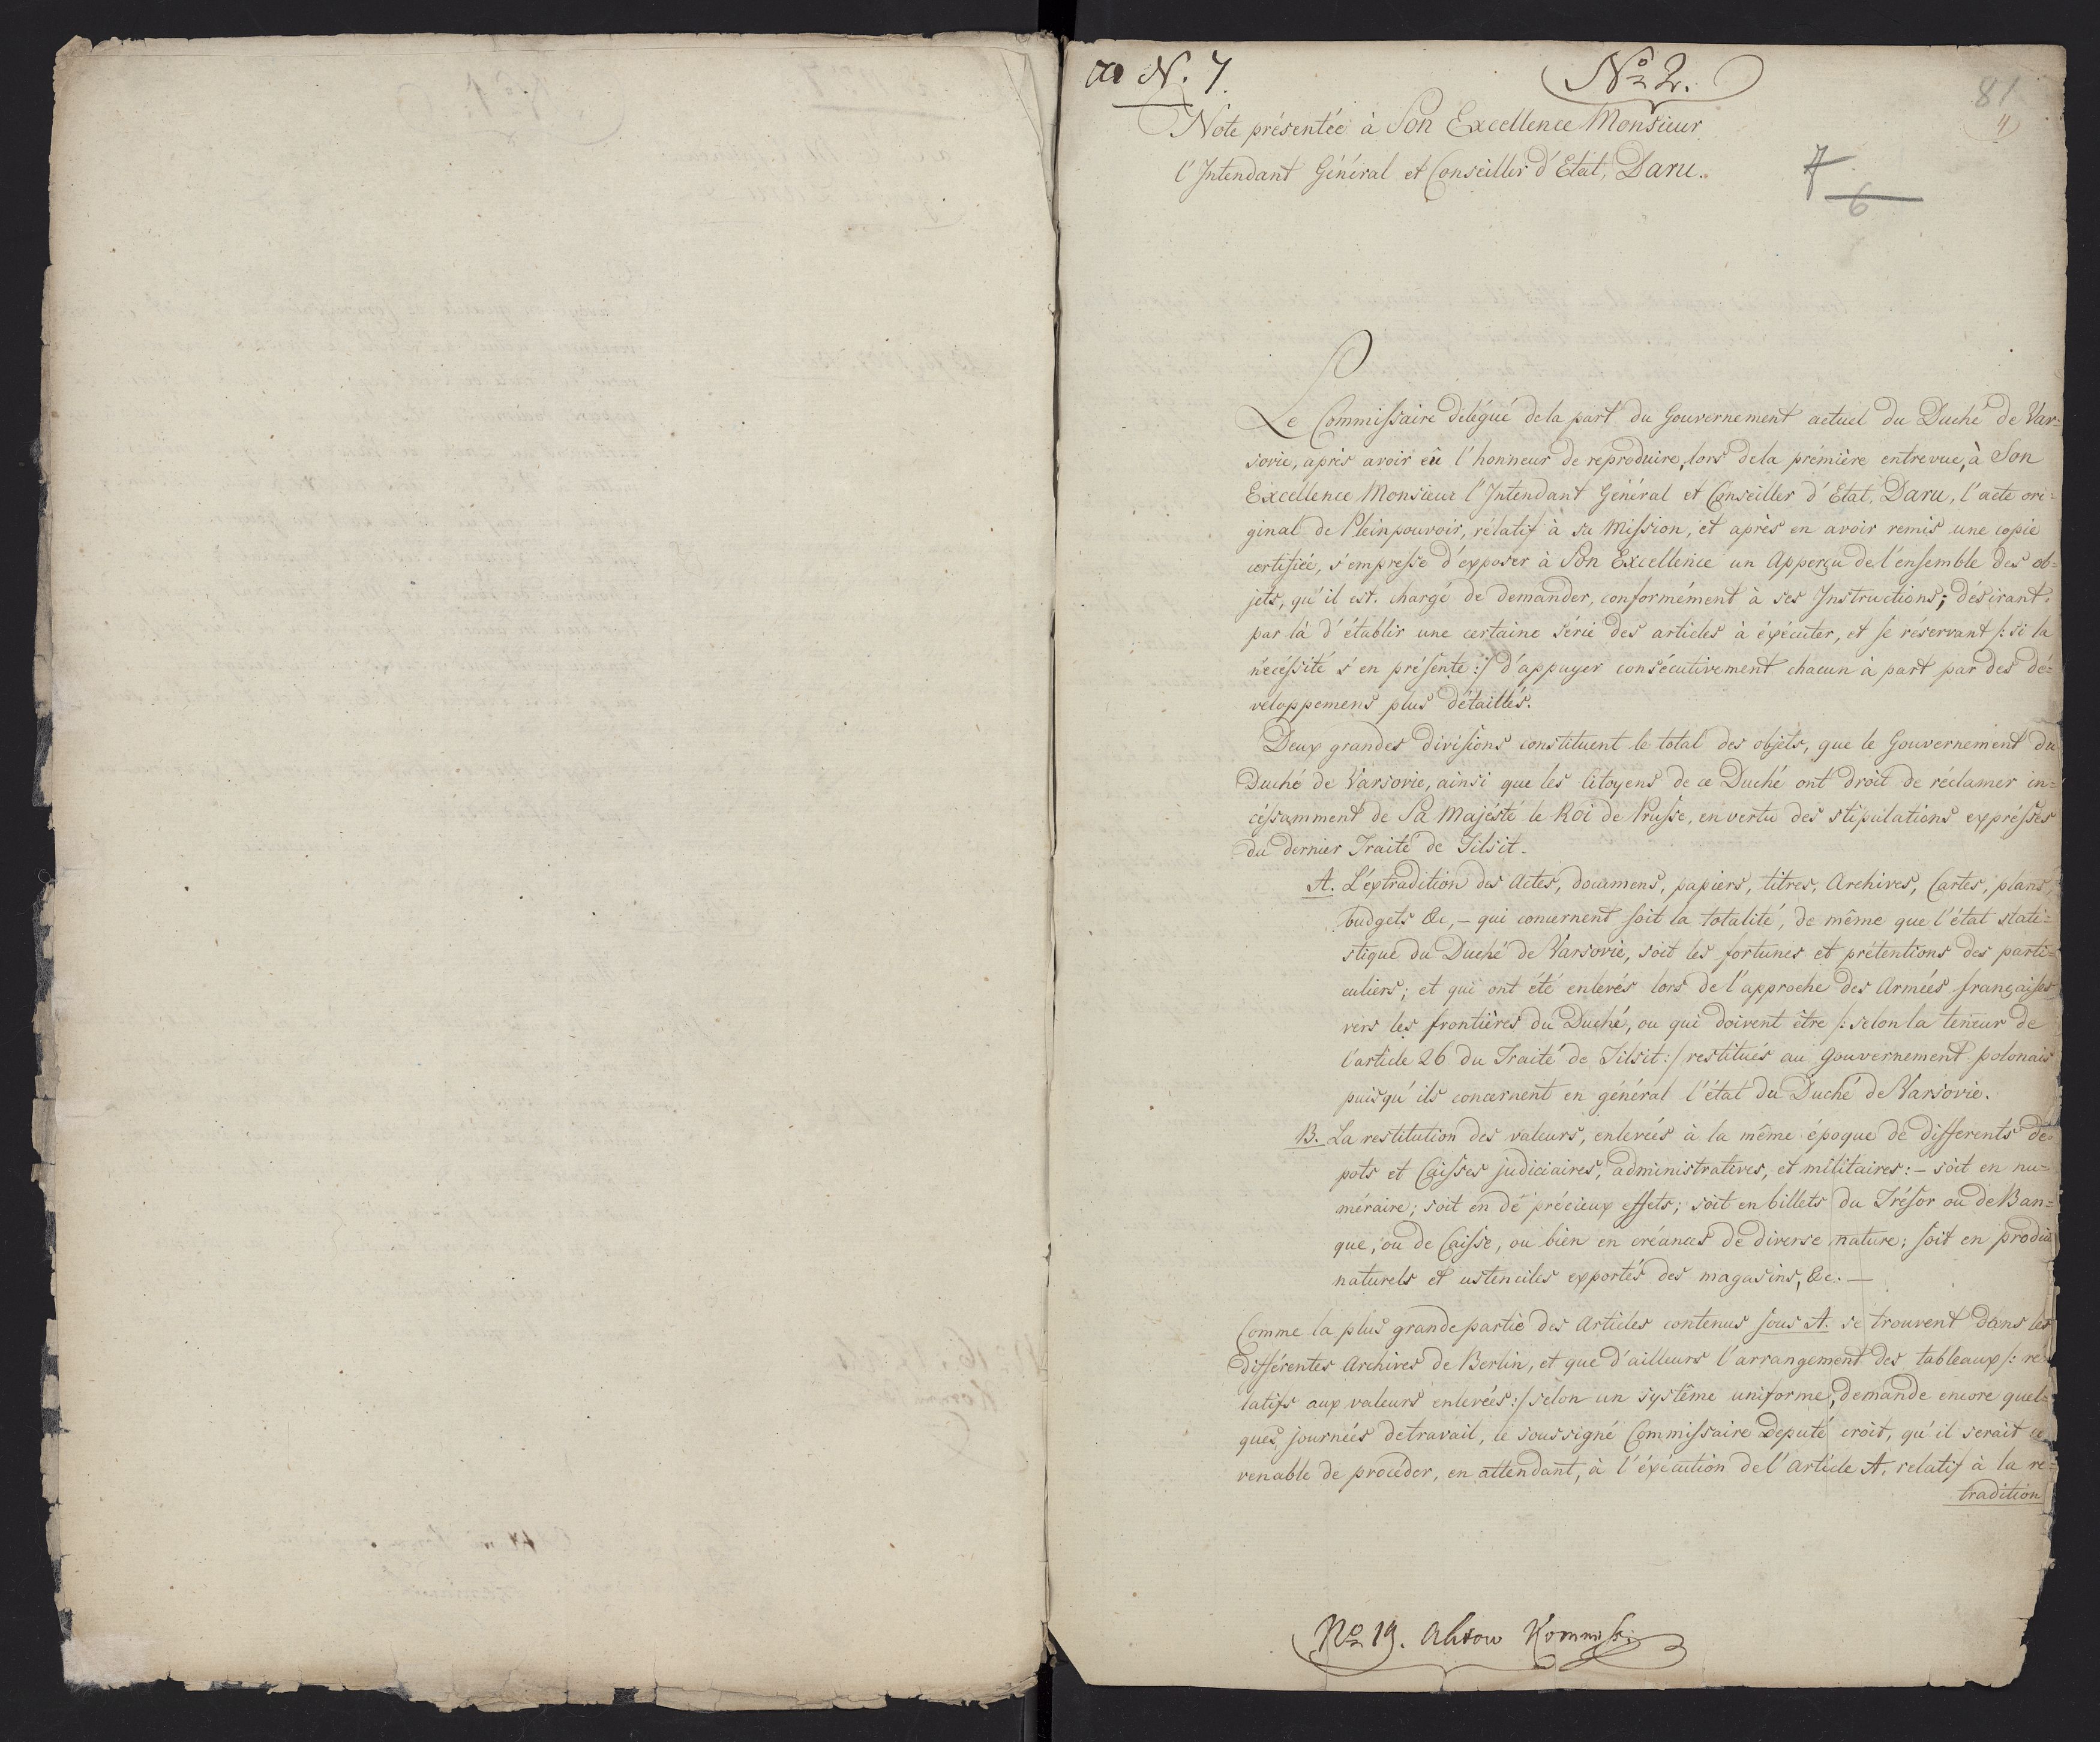 ad N. 7.
No 2.
81
4
Note présentée à Son Excellence Monsieur
l'Intendant Général et Conseiller d'Etat, Daru.
7
6
Le Commissaire delégué de la part du Gouvernement actuel du Duché de Var=
sovie, après avoir eû l'honneur de reproduire, lors de la prémière entrevue, à Son
Excellence Monsieur l'Intendant Général et Conseiller d'Etat, Daru, l'acte ori=
ginal de Pleinpouvoir, rélatif à sa Mission, et après en avoir remis une copie
certifiée, s'empresse d'exposer à Son Excellence un Apperçu de l'ensemble des ob=
jets, qu'il est chargé de demander, conformément à ses Instructions; désirant
par là d'établir une certaine série des articles à éxécuter, et se réservant /: si la
nécéssité s'en présente :/ d'appuyer consécutivement chacun à part par des dé=
veloppemens plus détaillés.
Deux grandes divisions constituent le total des objets, que le Gouvernement du
Duché de Varsovie, ainsi que les Citoyens de ce Duché ont droit de réclamer in=
céssamment de Sa Majésté le Roi de Prusse, en vertu des stipulations exprésses
du dernier Traité de Tilsit.
A. L'éxtradition des Actes, documens, papiers, titres, Archives, Cartes, plans,
budgets &c, – qui concernent soit la totalité, de même que l'état stati=
stique du Duché de Varsovie, soit les fortunes et prétentions des parti=
culiers; et qui ont été enlevés lors de l'approche des Armées françaises
vers les frontières du Duché, ou qui doivent être /: selon la teneur de
l'article 26 du Traité de Tilsit :/ restitués au Gouvernement polonais
puisqu'ils concernent en général l'état du Duché de Varsovie.
B. La restitution des valeurs, enlevées à la même époque de differents dé=
pots et Caisses judiciaires, administratives, et militaires: – soit en nu=
méraire; soit en dé précieux effets; soit en billets du Trésor ou de Ban=
que, ou de Caisse, ou bien en créances de diverse nature; soit en produits
naturels et ustenciles exportés des magasins, &c. –
Comme la plus grande partie des Articles contenus sous A. se trouvent dans les
différentes Archives de Berlin, et que d'ailleurs l'arrangement des tableaux /: re=
latifs aux valeurs enlevées :/ selon un système uniforme, demande encore quel=
ques journées de travail, le soussigné Commissaire Deputé croit, qu'il serait
venable de proceder, en attendant, à l'éxécution de l'Article A. relatif à la re=
tradition
No 19. Aktow Kommiss: